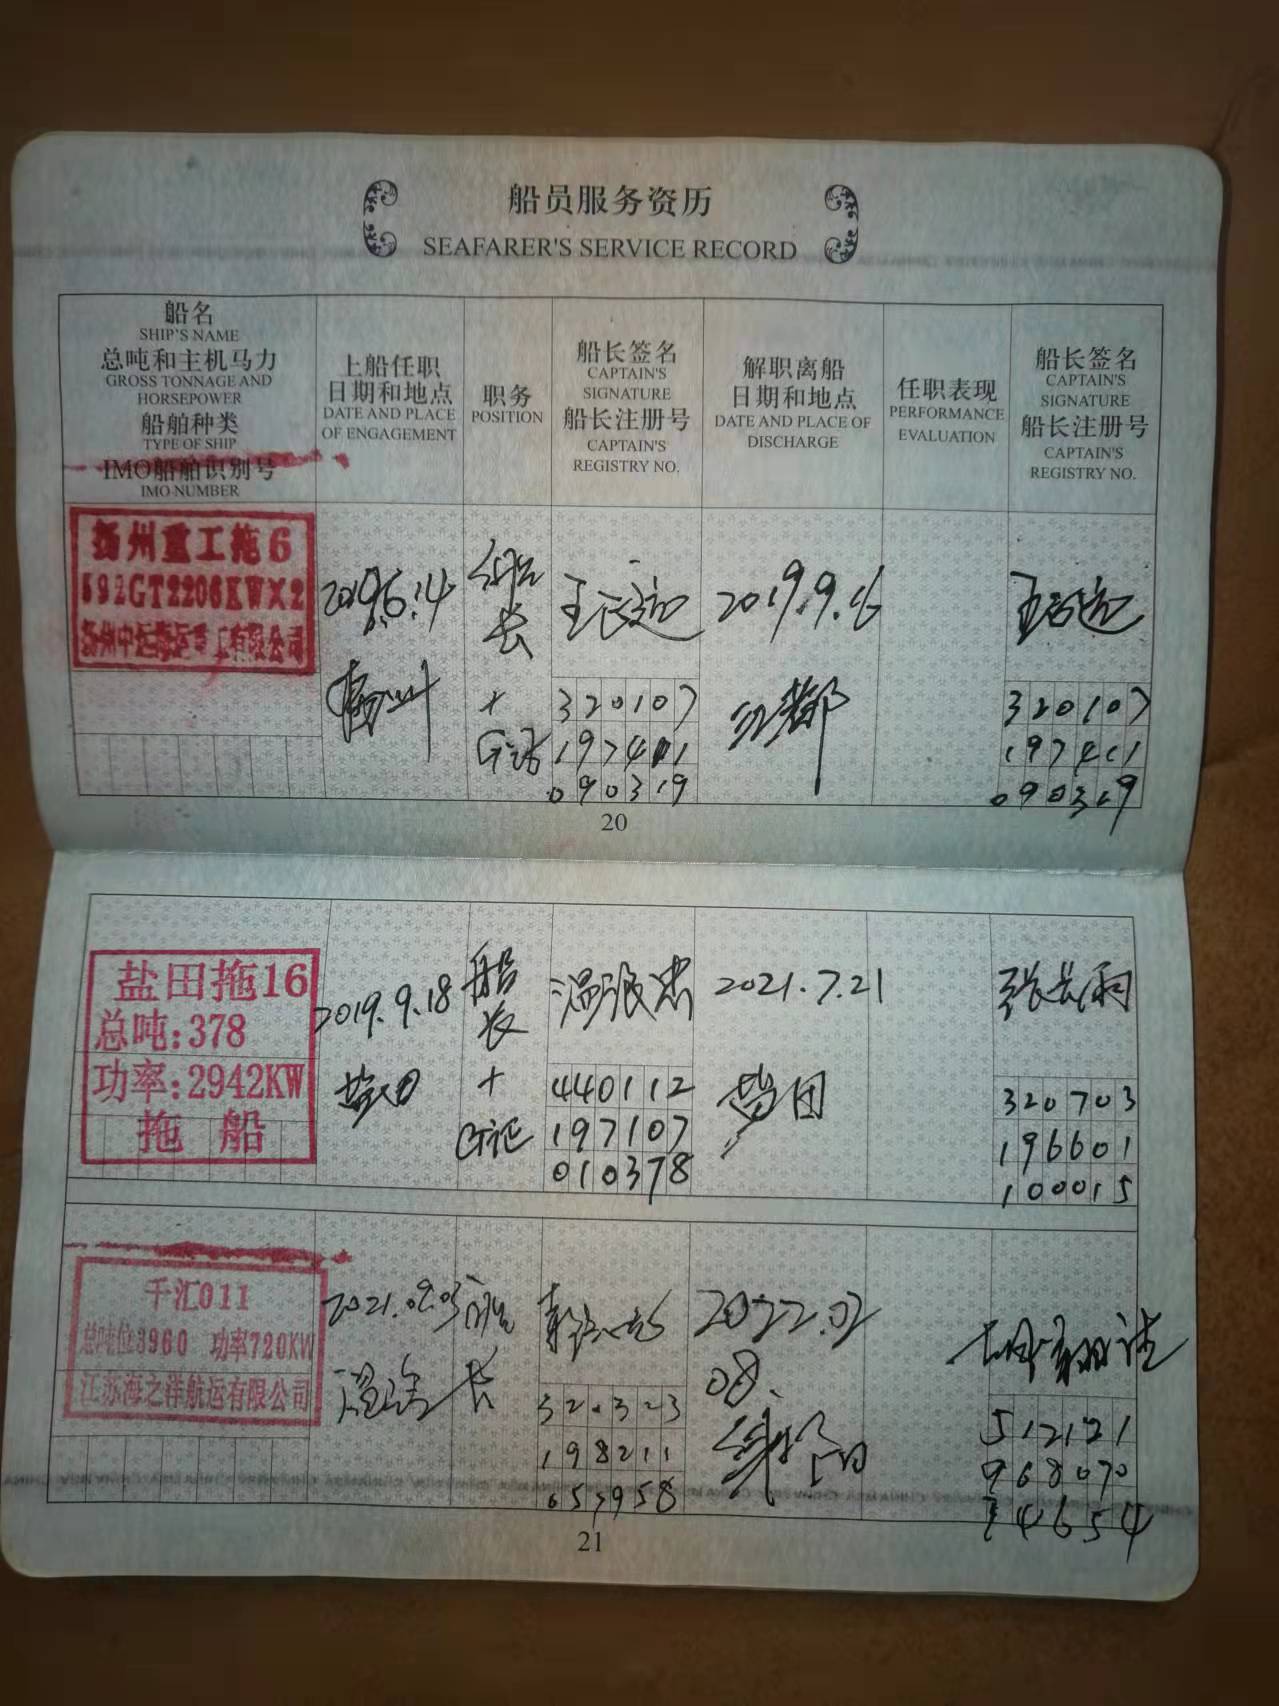 船员服务资历
SEAFARER'S SERVICE RECORD
船名
SHIP'S NAME
总吨和主机马力
GROSS TONNAGE AND
HORSEPOWER
船舶种类
TYPE OF SHIP
IMO船舶识别号
IMO NUMBER
上船任职
日期和地点
DATE AND PLACE
OF ENGAGEMENT
职务
POSITION
船长签名
CAPTAIN'S
SIGNATURE
船长注册号
CAPTAIN'S
REGISTRY NO.
解职离船
日期和地点
DATE AND PLACE OF
DISCHARGE
任职表现
PERFORMANCE
EVALUATION
船长签名
CAPTAIN'S
SIGNATURE
船长注册号
CAPTAIN'S
REGISTRY NO.
扬州重工拖6
592GT2206KW×2
扬州中远海运重工有限公司
2019.6.14
扬州
船长
+
G证
320107
197401
090319
2019.9.6
江都
320107
197401
090319
20
盐田拖16
总吨:378
功率:2942KW
拖 船
2019.9.18
盐田
船长
+
G证
440112
197107
010378
2021.7.21
盐田
张长雨
320703
196601
100015
千汇011
总吨位3960 功率720KW
江苏海之洋航运有限公司
2021.09.03
船长
198211
2022.02
08.
512121
21